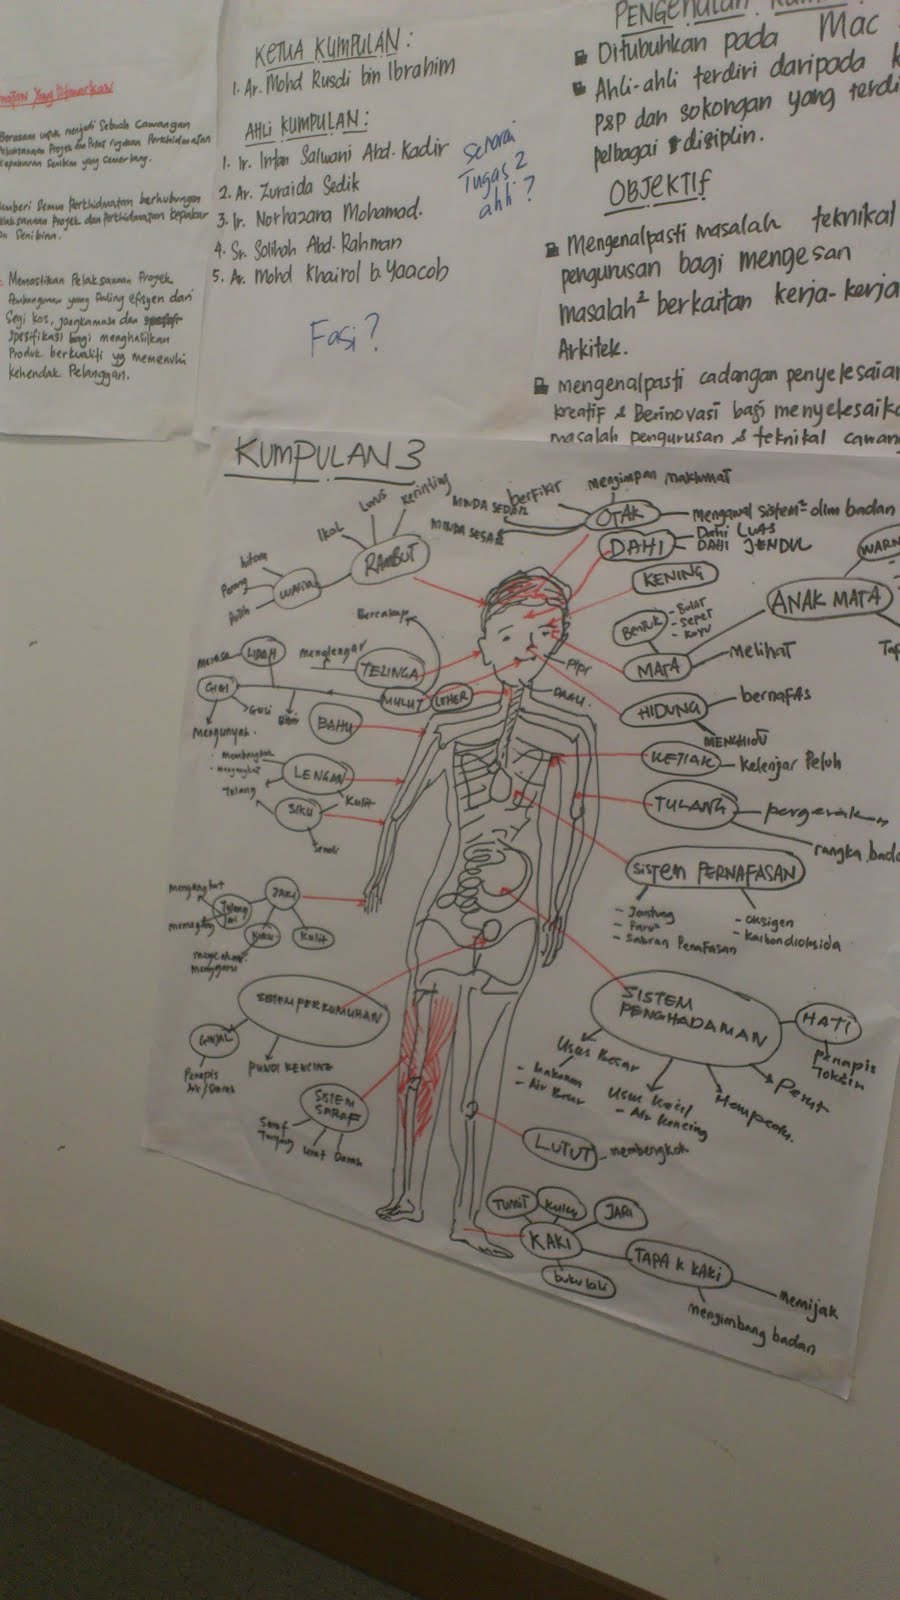 Yang Ditawarkan
Sebuah Cawangan
Pelaksanaan Projek dan Pusat rujukan Perkhidmatan
Kepakaran Senibina yang Cemerlang.
Semua Perkhidmatan berhubung
Pelaksanaan Projek dan Perkhidmatan kepakar
Senibina.
Memastikan Pelaksanaan Projek
yang Paling efisyen dari
Segi kos, jangkamasa dan
Spesifikasi bagi menghasilkan
Produk berkualiti yg memenuhi
Kehendak Pelanggan.
KETUA KUMPULAN :
1. Ar. Mohd Rusdi bin Ibrahim
AHLI KUMPULAN :
1. Ir. Intan Salwani Abd. Kadir
2. Ar. Zuraida Sedik
3. Ir. Norhazana Mohamad.
4. Sr. Solihah Abd. Rahman
5. Ar. Mohd Khairol b. Yaacob
Senarai
Tugas 2
ahli ?
Fasi ?
PENGENALAN
Ditubuhkan pada Mac
Ahli-ahli terdiri daripada
P&P dan sokongan yang terdi
pelbagai disiplin.
OBJEKTIF
Mengenalpasti masalah teknikal
pengurusan bagi mengesan
masalah² berkaitan kerja-kerja
Arkitek.
mengenalpasti cadangan penyelesaian
kreatif & Berinovasi bagi menyelesaika
masalah pengurusan & teknikal cawang
KUMPULAN 3
RAMBUT
Ikal
Lurus
Kerinting
WARNA
hitam
Perang
Putih
OTAK
MINDA SEDAR
MINDA SEGAR
berfikir
mengimpan maklumat
mengawal sistem² dlm badan
DAHI
Dahi LUAS
DAHI JENDUL
KENING
ANAK MATA
WARN
BENTUK
- Bulat
- Sepet
- Kuyu
MATA
melihat
HIDUNG
bernafas
MENGHIDU
Pipi
DAGU
TELINGA
mendengar
Bercakap
MULUT
LEHER
LIDAH
merasa
GIGI
Gusi
Bibir
Mengunyah.
BAHU
LENGAN
- membengkok
- mengangkat
Tulang
SIKU
Kulit
Sendi
KETIAK
Kelenjar Peluh
TULANG
pergerakan
rangka bada
SISTEM PERNAFASAN
- Jantung
- Paru²
- Saluran Pernafasan
- Oksigen
- Karbondioksida
JARI
Mengangkat
Tulang
memegang
Kuku
Kulit
SISTEM PERKUMUHAN
GINJAL
Penapis
Air/Darah
PUNDI KENCING
SISTEM
SARAF
Saraf
Tunjang
Urat Darah
SISTEM
PENGHADAMAN
HATI
Penapis
Toksin
Usus Besar
- Makanan
- Air Besar
Usus Kecil
- Air Kencing
Hempedu.
Perut
LUTUT
membengkok
KAKI
TUMIT
KUKU
JARI
buku lali
TAPAK KAKI
memijak
mengimbang badan